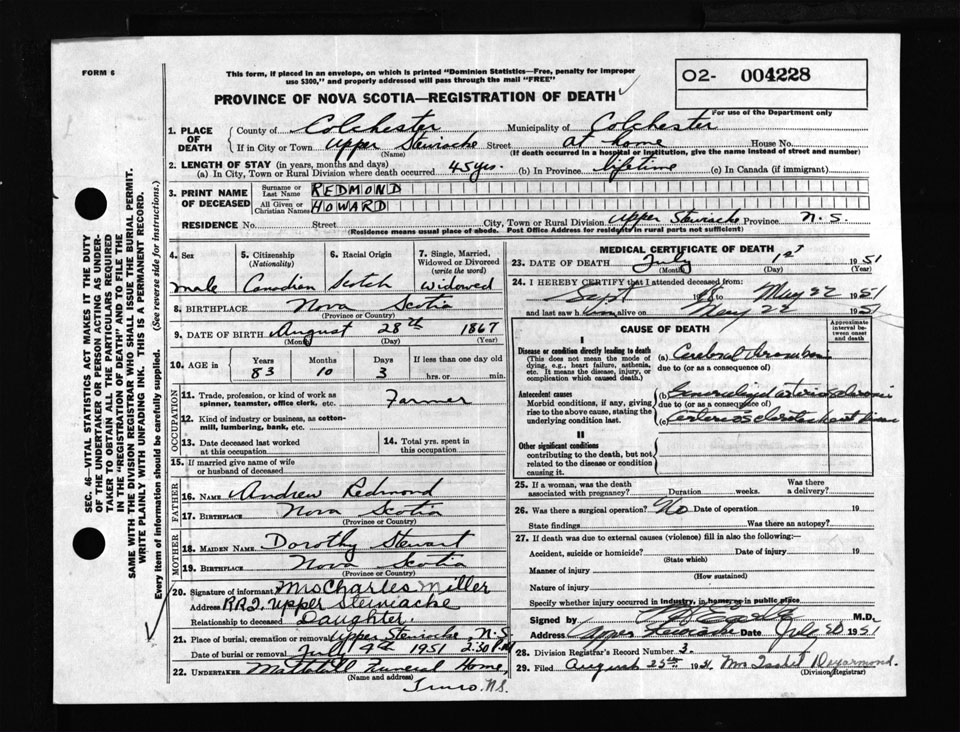 FORM 6
This form, if placed in an envelope, on which is printed "Dominion Statistics—Free, penalty for improper
use $300," and properly addressed will pass through the mail "FREE"
O2- 004228
For use of the Department only
PROVINCE OF NOVA SCOTIA—REGISTRATION OF DEATH
1. PLACE OF DEATH
County of Colchester Municipality of Colchester
If in City or Town Upper Stewiacke Street at home House No.
(Name) (If death occurred in a hospital or institution, give the name instead of street and number)
2. LENGTH OF STAY (in years, months and days)
(a) In City, Town or Rural Division where death occurred 45 yrs. (b) In Province lifetime (c) In Canada (if immigrant)
3. PRINT NAME OF DECEASED
Surname or Last Name REDMOND
All Given or Christian Names HOWARD
RESIDENCE No. Street City, Town or Rural Division Upper Stewiacke Province N.S.
(Residence means usual place of abode. Post Office Address for residents in rural parts not sufficient)
4. Sex
male
5. Citizenship (Nationality)
Canadian
6. Racial Origin
Scotch
7. Single, Married, Widowed or Divorced (write the word)
Widowed
8. BIRTHPLACE Nova Scotia
(Province or Country)
9. DATE OF BIRTH August 28th 1867
(Month) (Day) (Year)
10. AGE in Years Months Days If less than one day old
83 10 3 hrs. or min.
OCCUPATION
11. Trade, profession, or kind of work as
spinner, teamster, office clerk, etc. Farmer
12. Kind of industry or business, as cotton-
mill, lumbering, bank, etc.
13. Date deceased last worked at this occupation
14. Total yrs. spent in this occupation
15. If married give name of wife
or husband of deceased
FATHER
16. NAME Andrew Redmond
17. BIRTHPLACE Nova Scotia
(Province or Country)
MOTHER
18. MAIDEN NAME Dorothy Stewart
19. BIRTHPLACE Nova Scotia
(Province or Country)
20. Signature of informant Mrs Charles Miller
Address RR2, Upper Stewiacke
Relationship to deceased Daughter.
21. Place of burial, cremation or removal Upper Stewiacke, N.S.
Date of burial or removal July 4th 1951 2:30 P.M
22. UNDERTAKER Mattatall Funeral Home,
(Name and address)
Truro, N.S.
MEDICAL CERTIFICATE OF DEATH
23. DATE OF DEATH July 1st 1951
(Month) (Day) (Year)
24. I HEREBY CERTIFY that I attended deceased from:
Sept 1948 to May 22 1951
and last saw him alive on May 22 1951
CAUSE OF DEATH
Approximate interval between onset and death
I
Disease or condition directly leading to death
(This does not mean the mode of
dying, e.g., heart failure, asthenia,
etc. It means the disease, injury, or
complication which caused death.)
(a) Cerebral thrombosis
due to (or as a consequence of)
Antecedent causes
Morbid conditions, if any, giving
rise to the above cause, stating the
underlying condition last.
(b) Generalized arteriosclerosis
due to (or as a consequence of)
(c) Arteriosclerotic heart disease
II
Other significant conditions
contributing to the death, but not
related to the disease or condition
causing it.
25. If a woman, was the death associated with pregnancy? Duration weeks. Was there a delivery?
26. Was there a surgical operation? No Date of operation 19
State findings Was there an autopsy?
27. If death was due to external causes (violence) fill in also the following:—
Accident, suicide or homicide? Date of injury 19
(State which)
Manner of injury
(How sustained)
Nature of injury
Specify whether injury occurred in industry, in home, or in public place
Signed by M.D.
Address Upper Stewiacke Date July 30 1951
28. Division Registrar's Record No. 3.
29. Filed August 25th 1951. Mrs
(Division Registrar)
SEC. 46—VITAL STATISTICS ACT MAKES IT THE DUTY
OF THE UNDERTAKER OR PERSON ACTING AS UNDER-
TAKER TO OBTAIN ALL THE PARTICULARS REQUIRED
IN THE "REGISTRATION OF DEATH" AND TO FILE THE
SAME WITH THE DIVISION REGISTRAR WHO SHALL ISSUE THE BURIAL PERMIT.
WRITE PLAINLY WITH UNFADING INK. THIS IS A PERMANENT RECORD.
Every item of information should be carefully supplied. (See reverse side for instructions.)